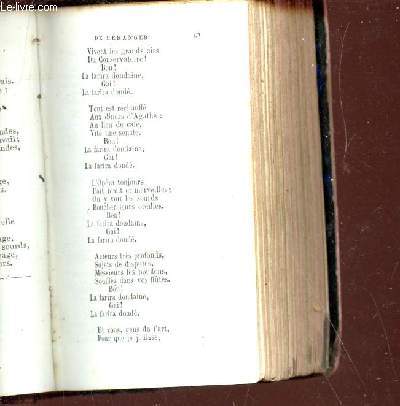 DE BÉRANGER
Vivent les grands airs
Du Conservatoire!
Bon!
La farira dondaine,
Gai!
La farira dondé.
Tout est réchauffé
Aux dîners d'Agathe:
Au lieu de café,
Vite une sonate.
Bon!
La farira dondaine,
Gai!
La farira dondé.
L'Opéra toujours
Fait bruit et merveilles:
On y voit les sourds
Boucher leurs oreilles.
Bon!
La farira dondaine,
Gai!
La farira dondé.
Acteurs très profonds,
Sujets de disputes,
Messieurs les bouffons,
Soufflez dans vos flûtes.
Bon!
La farira dondaine,
Gai!
La farira dondé.
Et vous, gens de l'art,
Pour que je jouisse,